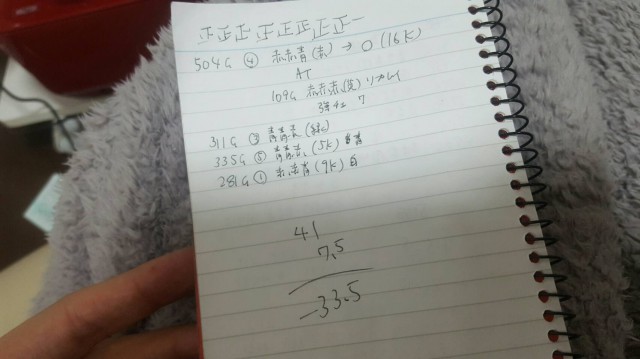 正正正正正正正正一
504G ④ 赤赤青(赤) → ○ (16K)
AT
109G 赤赤赤(黄) リプレイ
7
311G ③ 青青赤(緑)
335G ⑤ 青青赤(5K)
281G ① 赤赤青(9K) 白
41
7.5
-33.5